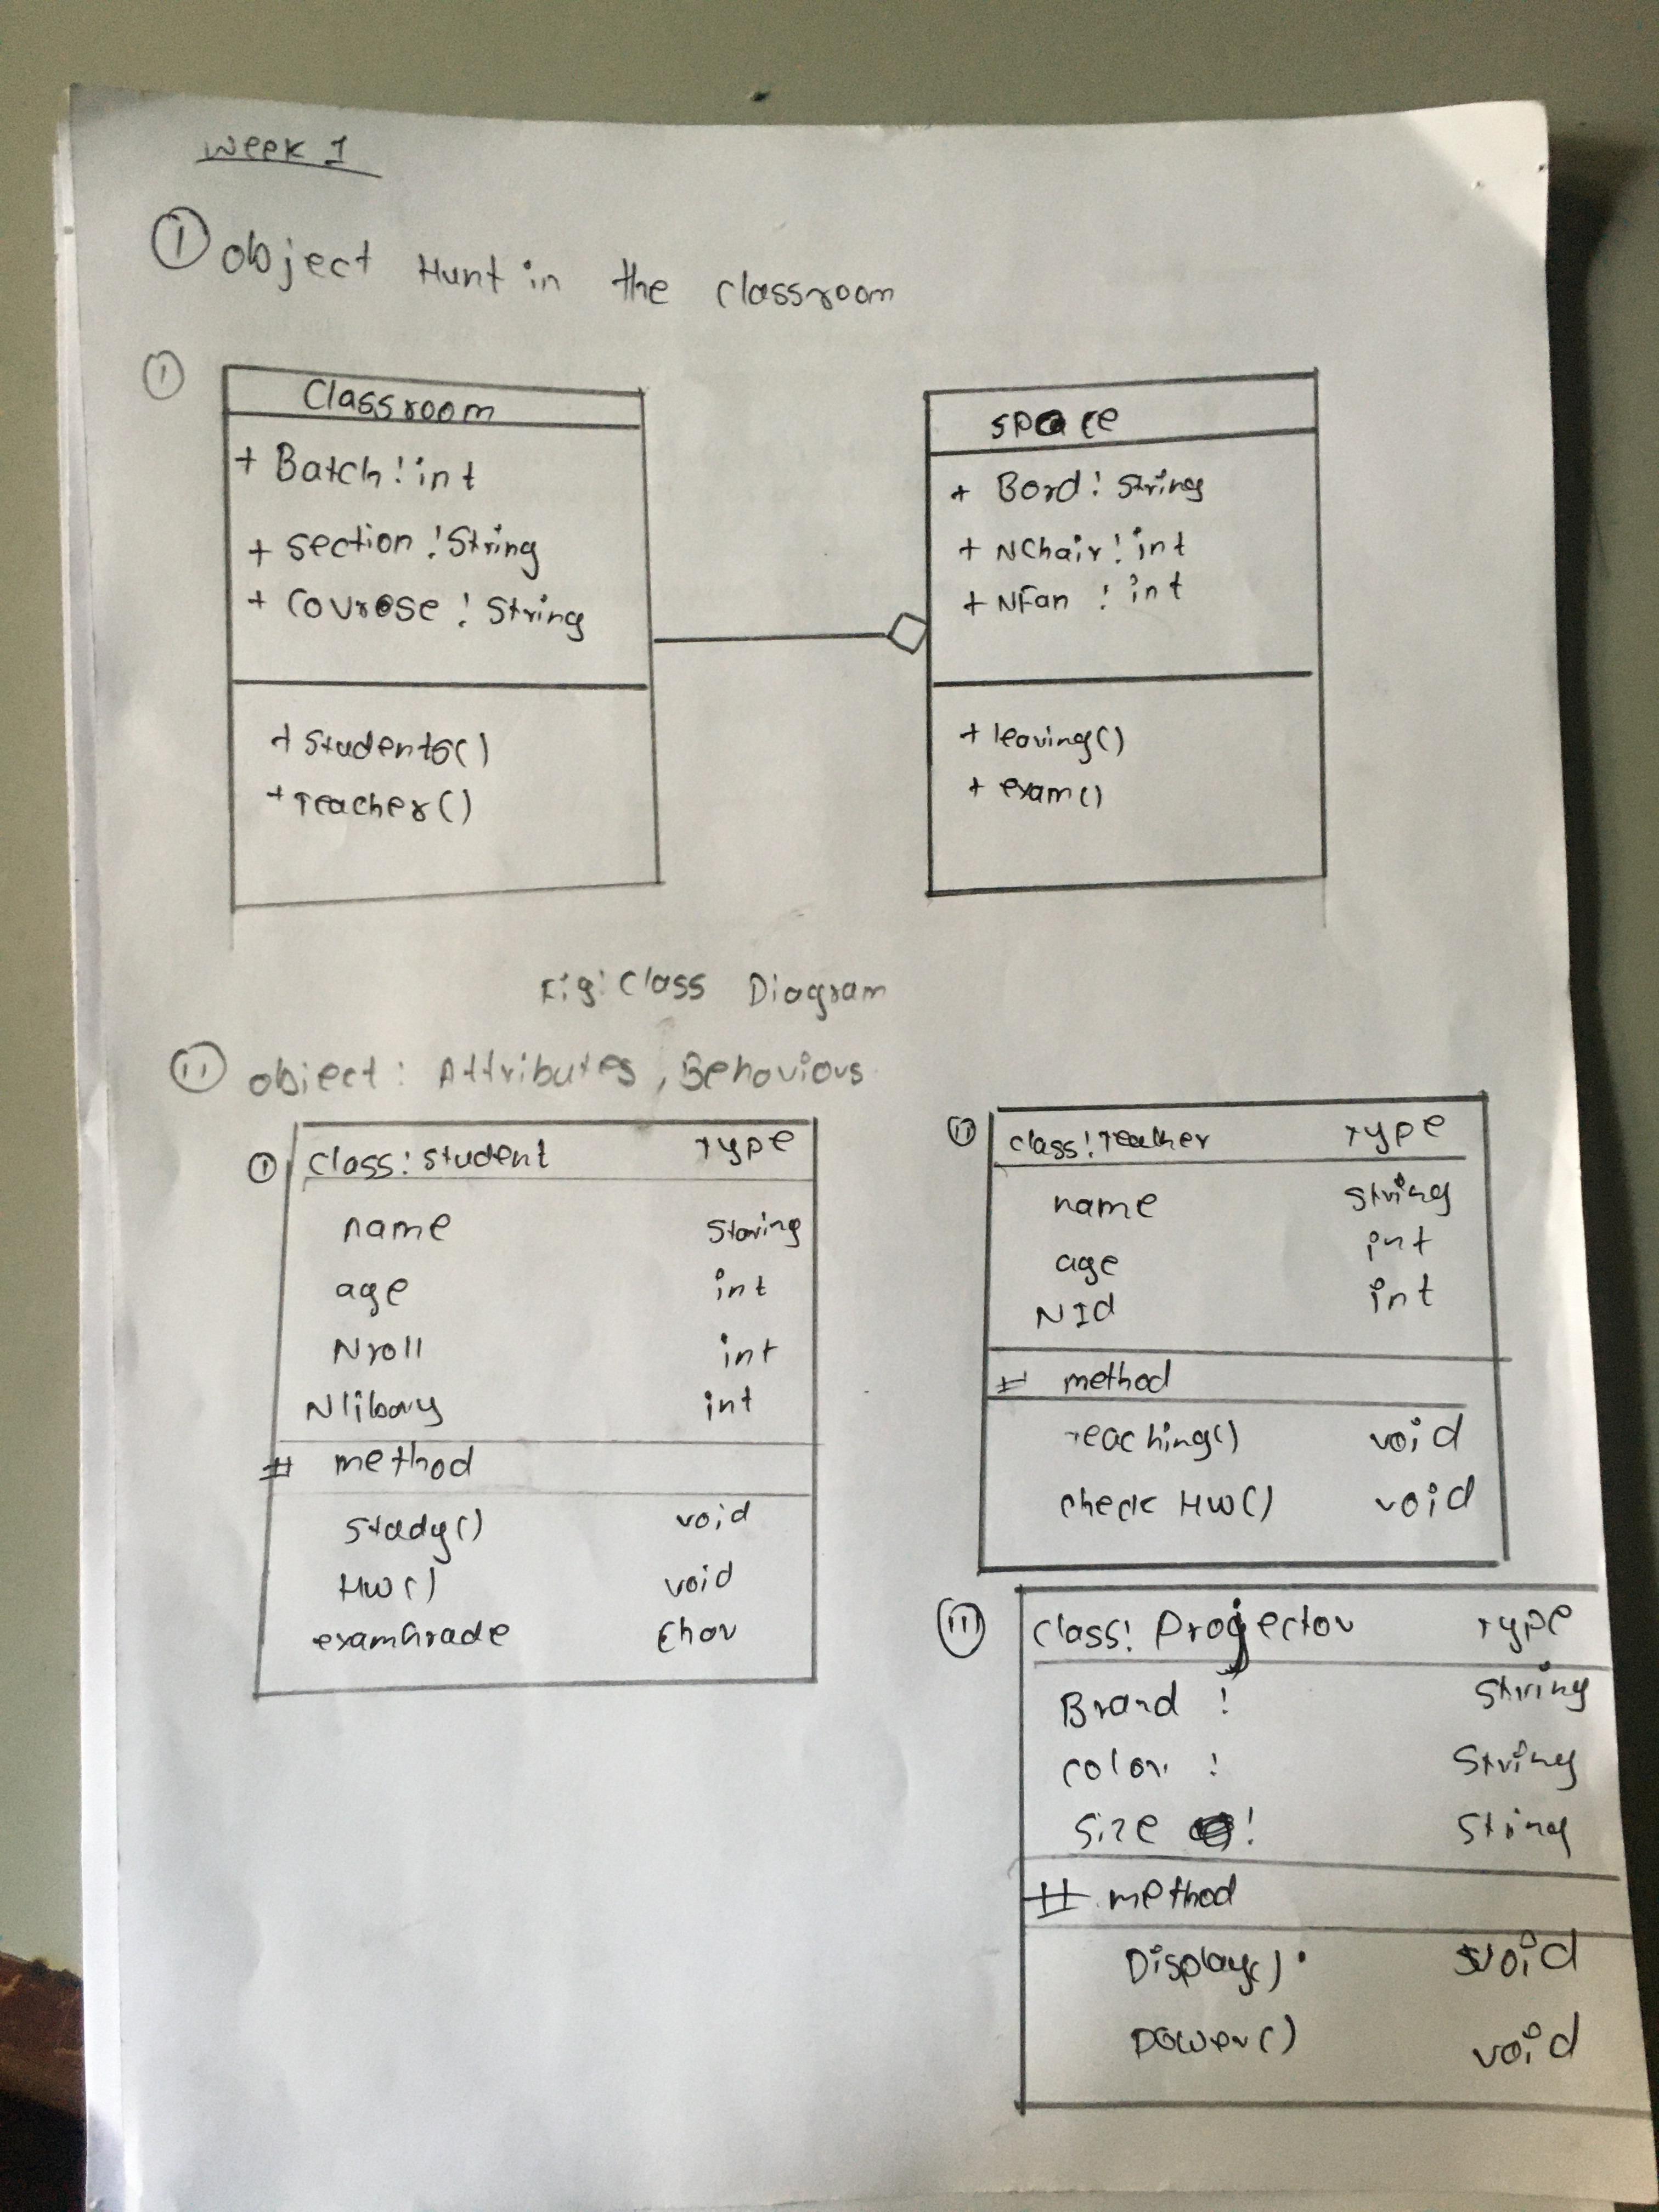 week 1
① object Hunt in the classroom
①
Classroom
+ Batch : int
+ section : String
+ Courose : String
+ Students()
+ Teacher()
space
+ Bord : String
+ NChair : int
+ NFan : int
+ leaving()
+ exam()
Fig: Class Diagram
ⅱ object : Attributes, Behavious
① Class : Student Type
name String
age int
Nroll int
Nlibary int
# method
Study() void
HW() void
examGrade Char
ⅱ class : Teacher Type
name String
age int
NId int
# method
Teaching() void
check HW() void
ⅲ Class : Projector Type
Brand : String
color : String
Size : Sting
# method
Display() void
Power() void